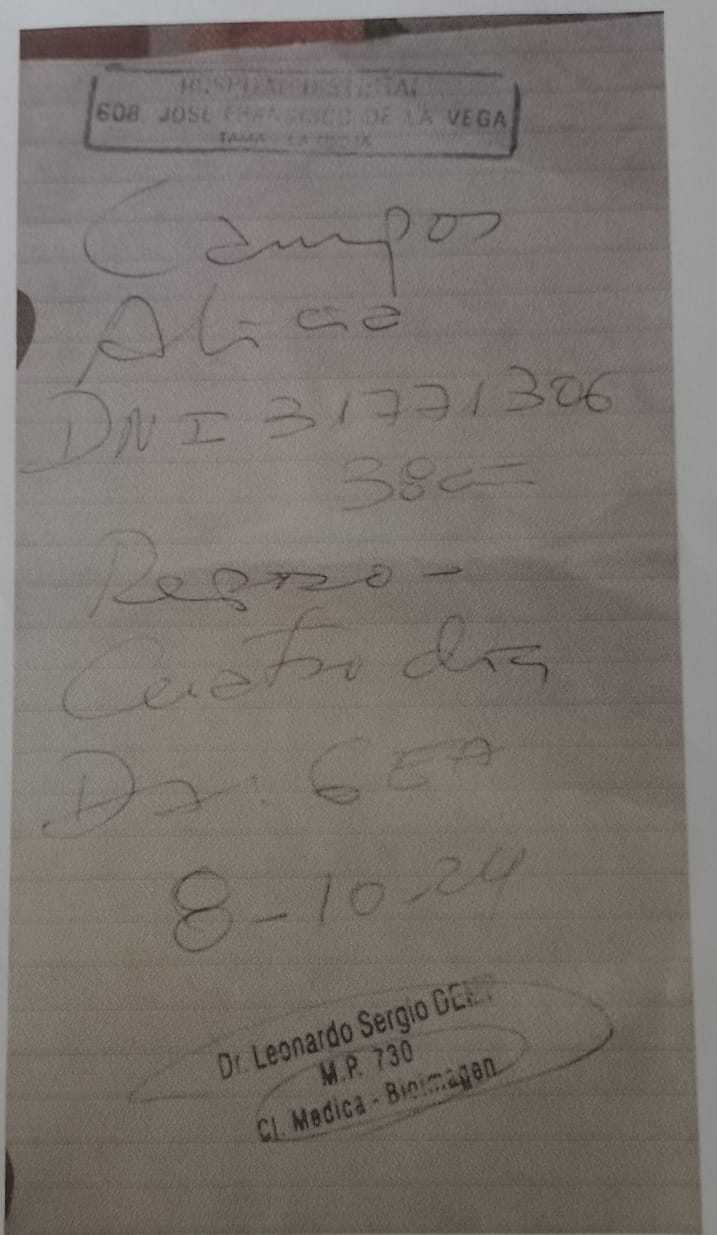 HOSPITAL DISTRITAL
608 JOSE FRANCISCO DE LA VEGA
TAMA - LA RIOJA
Campos
Alicia
DNI 31771306
38a
Reposo -
Cuatro días
Dx: GEA
8-10-24
Dr. Leonardo Sergio
M.P. 730
Cl. Medica - Bioimagen